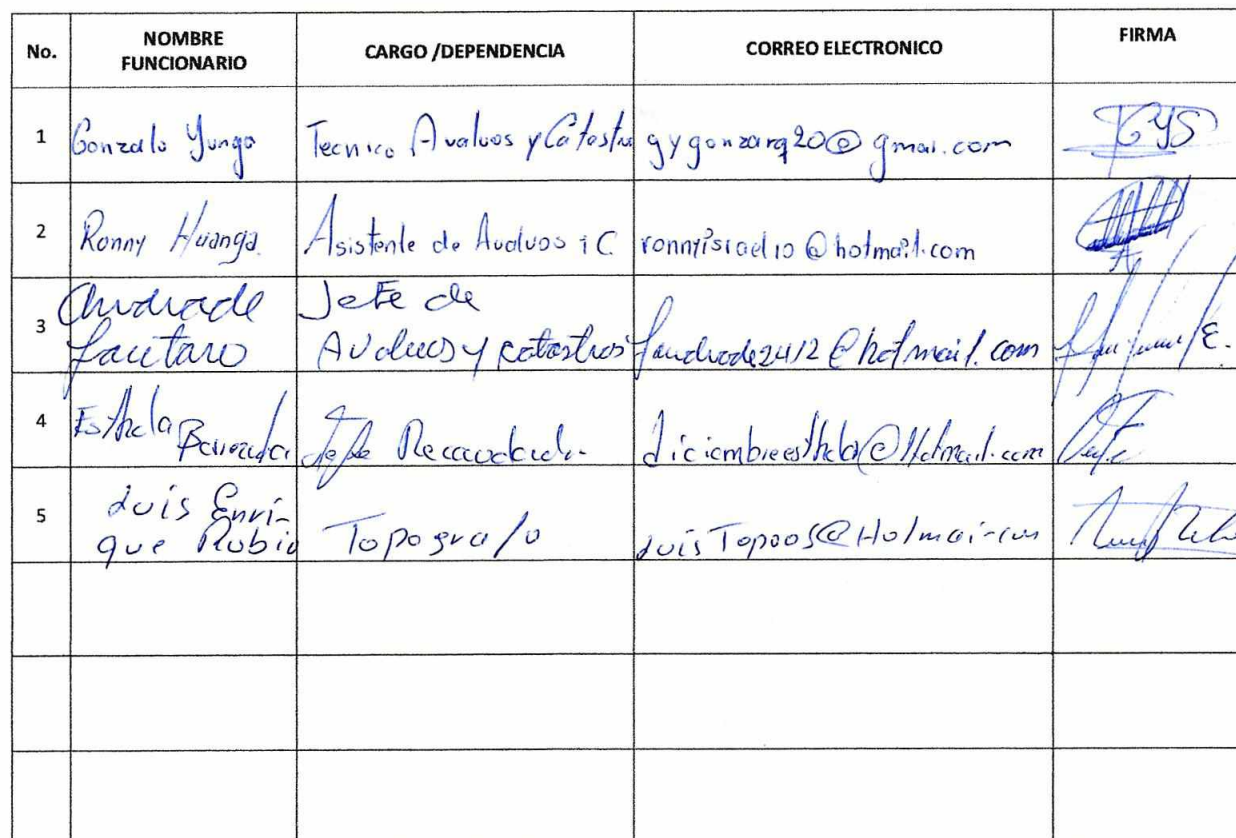 No. NOMBRE FUNCIONARIO CARGO /DEPENDENCIA CORREO ELECTRONICO FIRMA
1 Gonzalo Yunga Tecnico Avaluos y Catastro gygonzarq20@gmai.com GYS
2 Ronny Huanga. Asistente de Avaluos i C. ronnyisrael10@hotmail.com
3 Andrade Lautaro Jefe de Avaluos y catastros landrade2412@hotmail.com
4 Esthela Jefe diciembreesthela@Hotmail.com
5 Luis Enrique Rubio Topografo